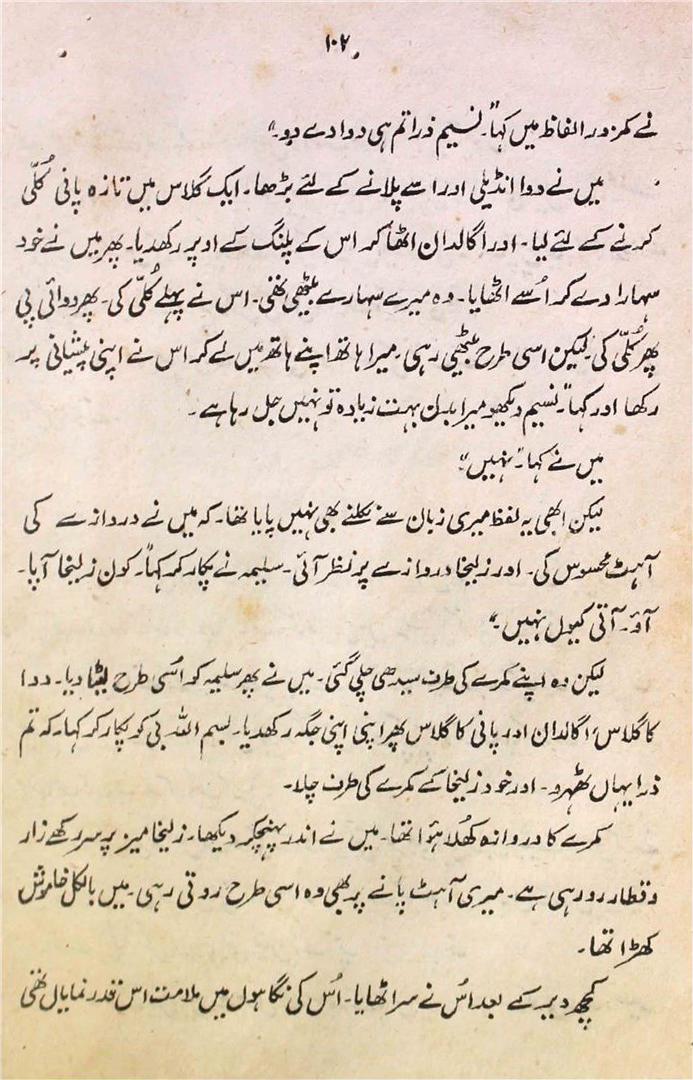 ۱۰۷
نے کمزور الفاظ میں کہا۔ "نسیم ذرا تم ہی دوا دے دو۔"
میں نے دوا انڈیلی اور اسے پلانے کے لئے بڑھا۔ ایک گلاس میں تازہ پانی کُلّی
کرنے کے لئے لیا۔ اور اگالدان اٹھا کر اس کے پلنگ کے اوپر رکھدیا۔ پھر میں نے خود
سہارا دے کر اُسے اٹھایا۔ وہ میرے سہارے بیٹھی تھی۔ اس نے پہلے کُلّی کی۔ پھر دوائی پی
پھر کُلّی کی لیکن اسی طرح بیٹھی رہی۔ میرا ہاتھ اپنے ہاتھ میں لے کر اس نے اپنی پیشانی پر
رکھا اور کہا "نسیم دیکھو میرا بدن بہت زیادہ تو نہیں جل رہا ہے۔
میں نے کہا۔ "نہیں"
لیکن ابھی یہ لفظ میری زبان سے نکلنے بھی نہیں پایا تھا۔ کہ میں نے دروازے کی
آہٹ محسوس کی۔ اور زلیخا دروازے پر نظر آئی۔ سلیمہ نے پکار کر کہا۔ "کون زلیخا آپا۔
آؤ۔ آتی کیوں نہیں۔"
لیکن وہ اپنے کمرے کی طرف سیدھی چلی گئی۔ میں نے پھر سلیمہ کو اُسی طرح لٹا دیا۔ دوا
کا گلاس، اگالدان اور پانی کا گلاس پھر اپنی اپنی جگہ رکھدیا۔ بسم اللہ بی کو پکار کر کہا۔ کہ تم
ذرا یہاں ٹھہرو۔ اور خود زلیخا کے کمرے کی طرف چلا۔
کمرے کا دروازہ کھُلا ہؤا تھا۔ میں نے اندر پہنچکر دیکھا۔ زلیخا میز پر سر رکھے زار
و قطار رو رہی ہے۔ میری آہٹ پانے پر بھی وہ اسی طرح روتی رہی۔ میں بالکل خاموش
کھڑا تھا۔
کچھ دیر کے بعد اس نے سر اٹھایا۔ اُس کی نگاہوں میں ملامت اس قدر نمایاں تھی